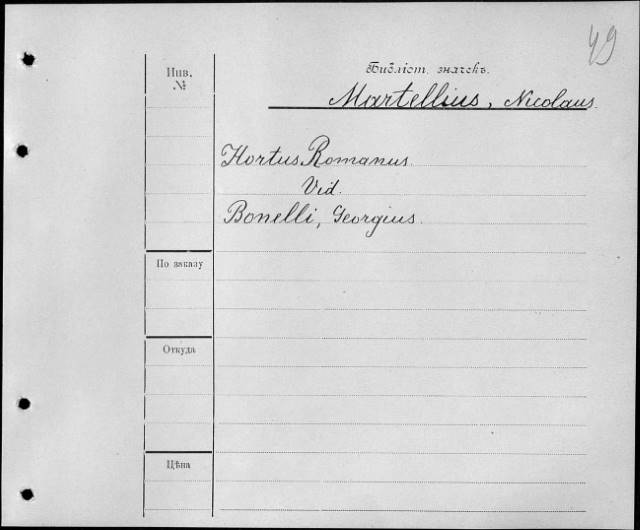 49
Инв.
№
Библіот. значекъ.
Martellius, Nicolaus.
Hortus Romanus.
Vid.
Bonelli, Georgius.
По заказу
Откуда
Цѣна